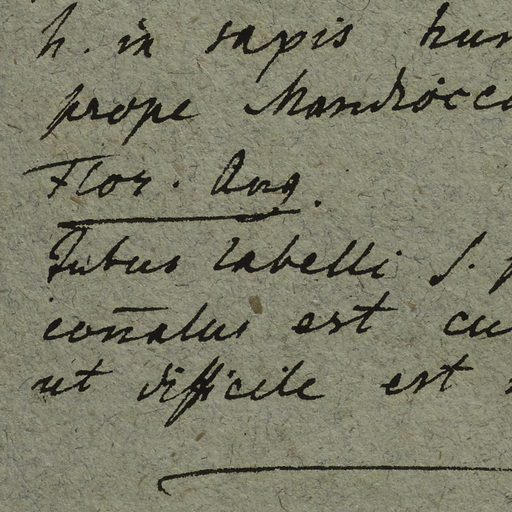 h. in rapis hum
prope Mandrócca
Flor. Aug.
Tubus labelli s. p
con̅atus est cu
ut difficile est